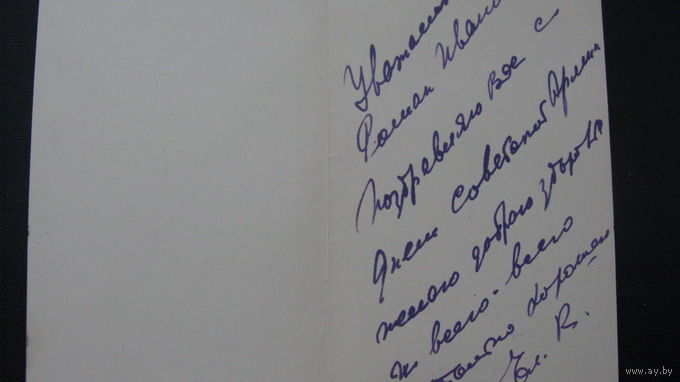 Уважаем
Роман Ивано
Поздравляю Вас с
Днем Советской Армии
желаю доброго здоровья
и всего-всего
только хорошего
В.
www.ay.by